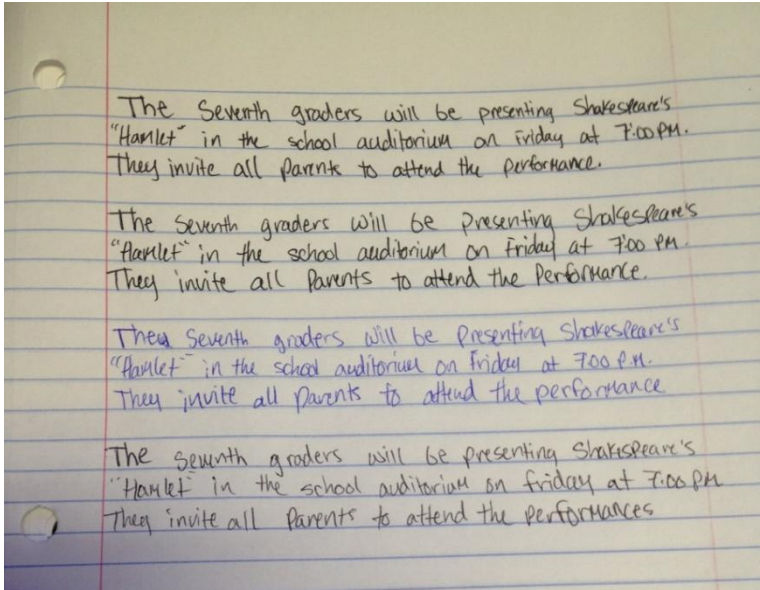 The Seventh graders will be presenting Shakespeare's
"Hamlet" in the school auditorium on Friday at 7:00 PM.
They invite all Parents to attend the performance.
The Seventh graders will be presenting Shakespeare's
"Hamlet" in the school auditorium on Friday at 7:00 PM.
They invite all Parents to attend the Performance.
They Seventh graders will be Presenting Shakespeare's
"Hamlet" in the school auditorium on Friday at 700 P.M.
They invite all Parents to attend the performance
The Seventh graders will be presenting Shakespeare's
"Hamlet" in the school auditorium on friday at 7:00 PM
They invite all Parents to attend the performances